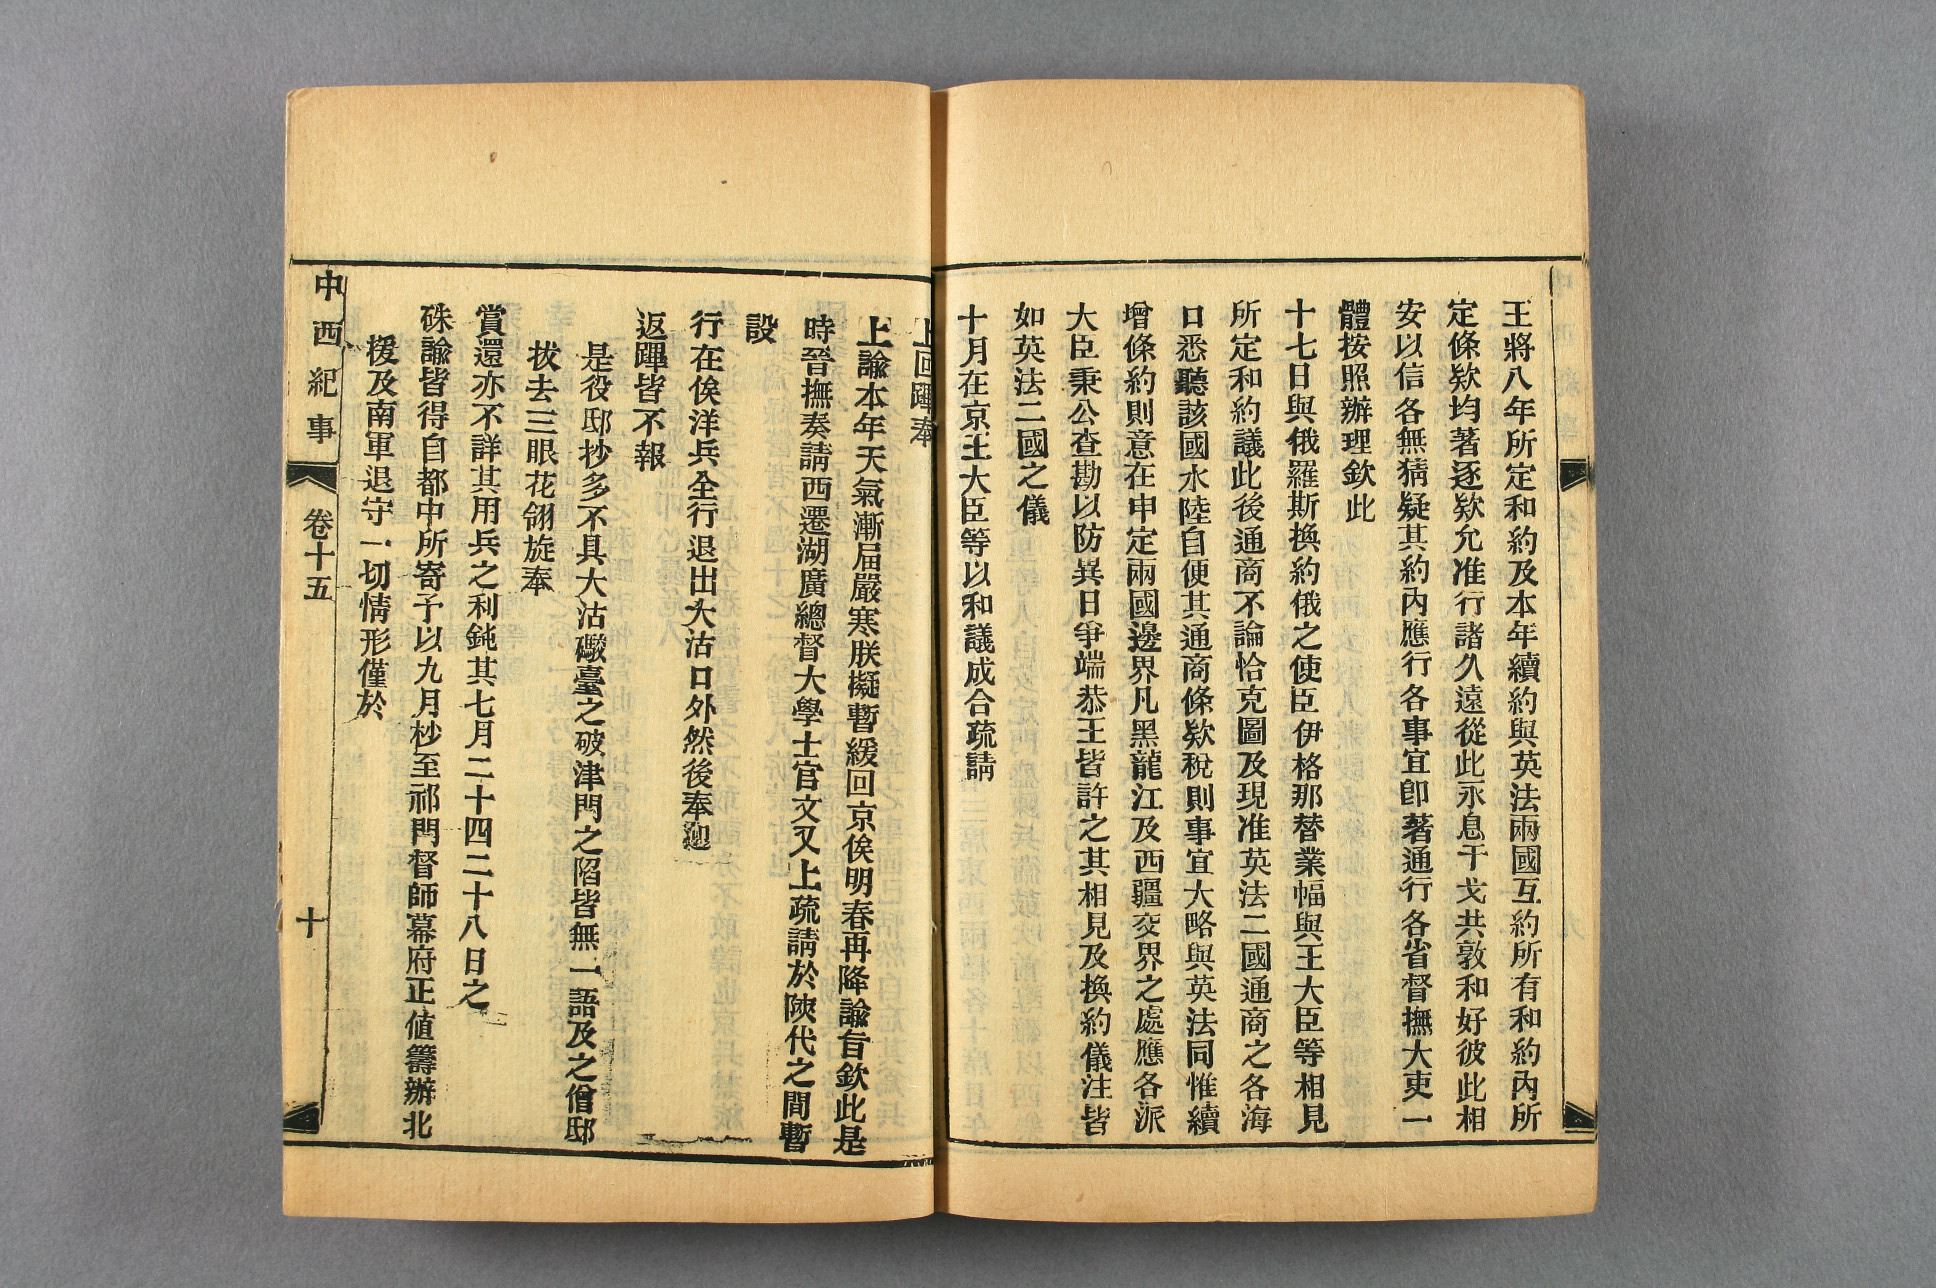 王將八年所定和約及本年續約與英法兩國互約所有和約內所
定條欵均著逐欵允准行諸久遠從此永息干戈共敦和好彼此相
安以信各無猜疑其約內應行各事宜卽著通行各省督撫大吏一
體按照辦理欽此
十七日與俄羅斯換約俄之使臣伊格那替業幅與王大臣等相見
所定和約議此後通商不論恰克圖及現准英法二國通商之各海
口悉聽該國水陸自便其通商條欵稅則事宜大略與英法同惟續
增條約則意在申定兩國邊界凡黑龍江及西疆交界之處應各派
大臣秉公查勘以防異日爭端恭王皆許之其相見及換約儀注皆
如英法二國之儀
十月在京王大臣等以和議成合疏請
上回蹕奉
上諭本年天氣漸屆嚴寒朕擬暫緩回京俟明春再降諭旨欽此是
時晉撫奏請西遷湖廣總督大學士官文又上疏請於陝代之間暫
設
行在俟洋兵全行退出大沽口外然後奉迎
返蹕皆不報
是役邸抄多不具大沽礮臺之破津門之陷皆無一語及之僧邸
拔去三眼花翎旋奉
賞還亦不詳其用兵之利鈍其七月二十四二十八日之
硃諭皆得自都中所寄予以九月杪至祁門督師幕府正値籌辦北
援及南軍退守一切情形僅於
中西紀事
卷十五
十